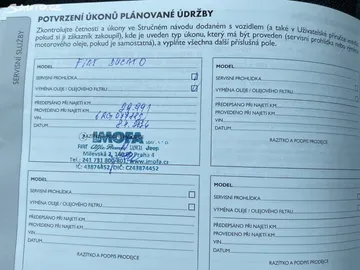 POTVRZENÍ ÚKONŮ PLÁNOVANÉ ÚDRŽBY
Zkontrolujte četnosti a úkony ve Stručném návodu dodaném s vozidlem (a také v Uživatelské
pokud si ji zákazník zakoupil), kde je uveden typ úkonu, který má být proveden (servisní prohlídka nebo
motorového oleje, pokud je samostatná), a vyplňte všechna další příslušná pole.
SERVISNÍ SLUŽBY
MODEL
FIAT DUCATO
SERVISNÍ PROHLÍDKA
VÝMĚNA OLEJE / OLEJOVÉHO FILTRU
PŘEDEPSÁNO PŘI NAJETÍ KM
PROVEDENO PŘI NAJETÍ KM
VIN
DATUM
IMOFA
Jeep
Milevská 2, 140 00 Praha 4
Tel.: 241 731 800-801, www.imofa.cz
IČ: 43874452, DIČ: CZ43874452
MODEL
SERVISNÍ PROHLÍDKA
VÝMĚNA OLEJE / OLEJOVÉHO FILTRU
PŘEDEPSÁNO PŘI NAJETÍ KM
PROVEDENO PŘI NAJETÍ KM
VIN
DATUM
RAZÍTKO A PODPIS PRODEJCE
MODEL
SERVISNÍ PROHLÍDKA
VÝMĚNA OLEJE / OLEJOVÉHO FILTRU
PŘEDEPSÁNO PŘI NAJETÍ KM
PROVEDENO PŘI NAJETÍ KM
VIN
DATUM
RAZÍTKO A PODPIS PRODEJCE
MODEL
SERVISNÍ PROHLÍDKA
VÝMĚNA OLEJE / OLEJOVÉHO FILTRU
PŘEDEPSÁNO PŘI NAJETÍ KM
PROVEDENO PŘI NAJETÍ KM
VIN
DATUM
RAZÍTKO A PODPIS PRODEJCE